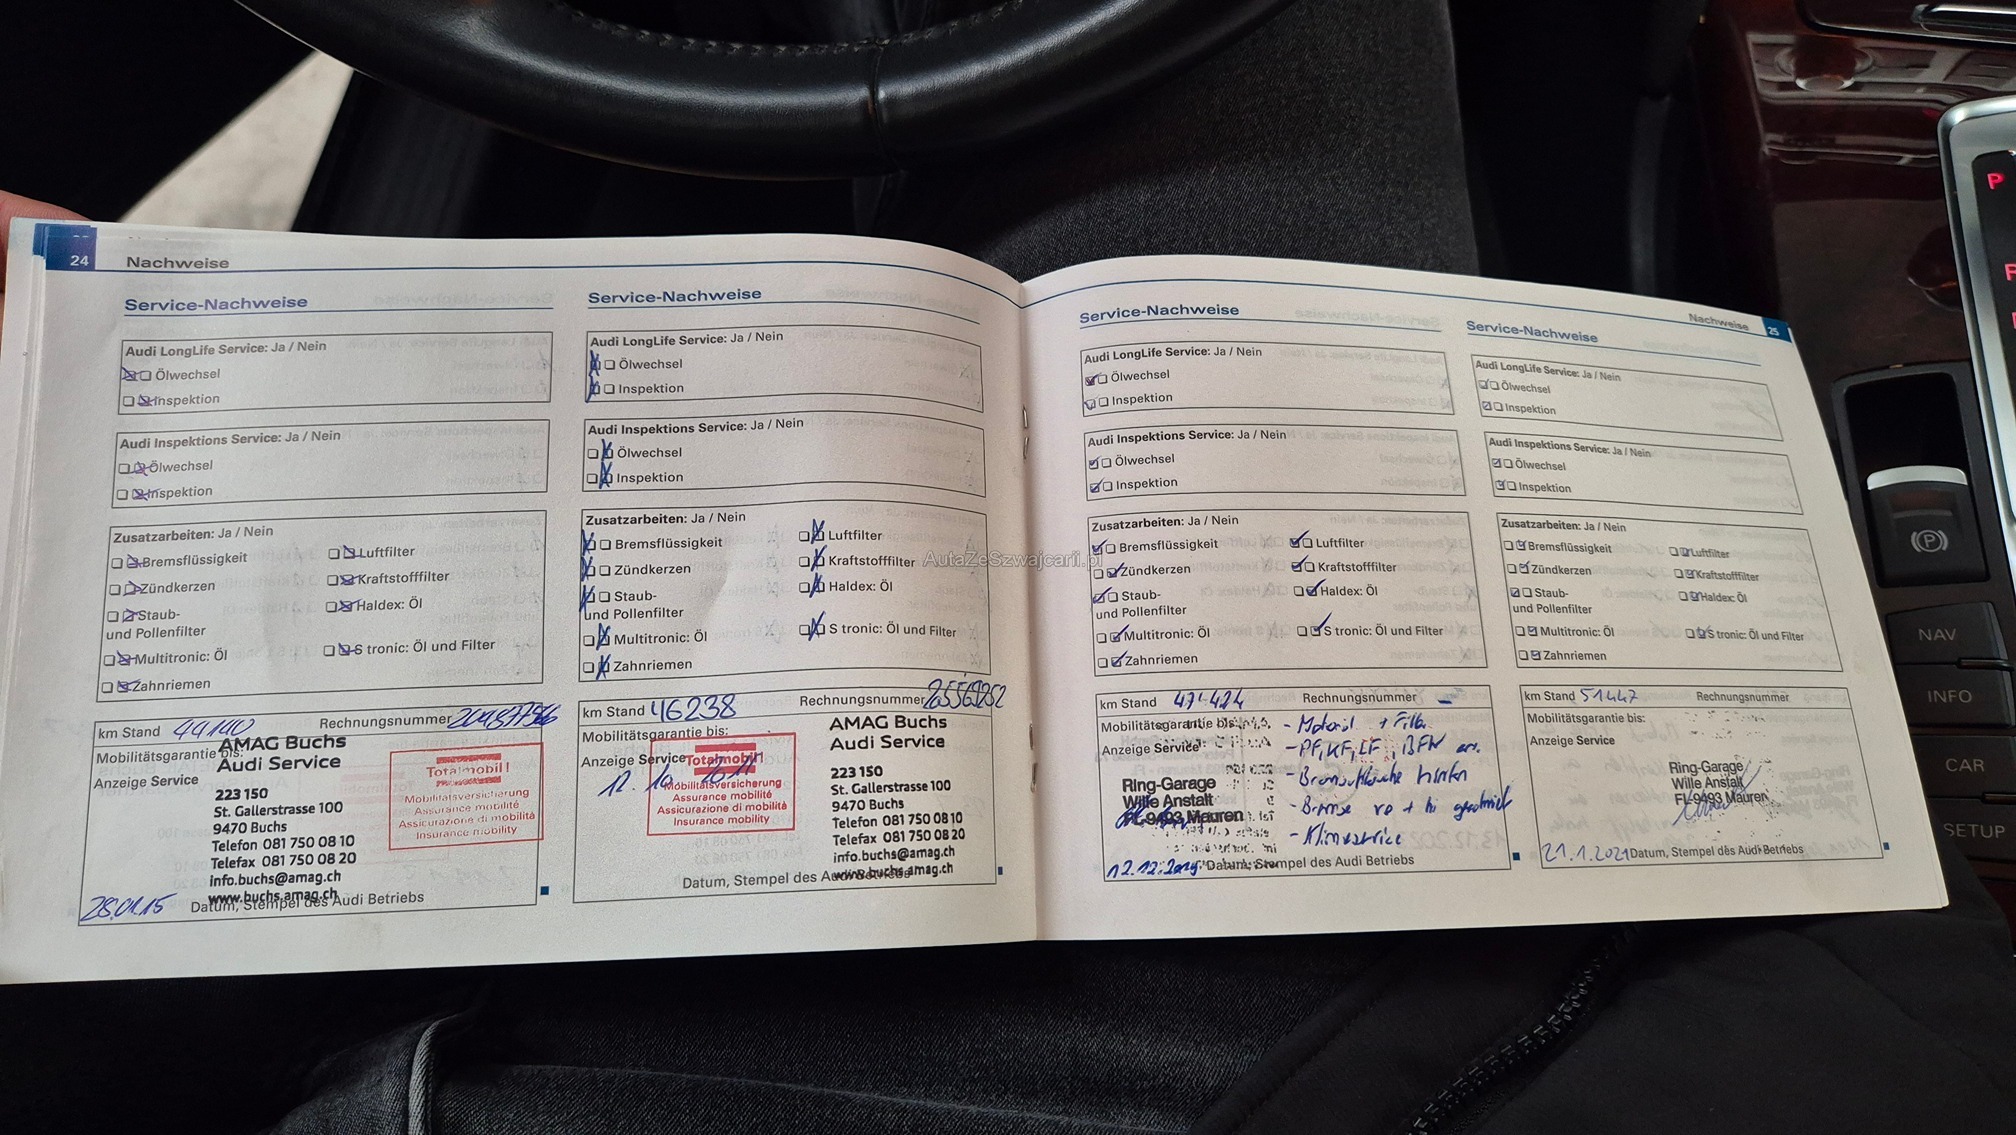 24 Nachweise
Service-Nachweise
Audi LongLife Service: Ja / Nein
Ölwechsel
Inspektion
Audi Inspektions Service: Ja / Nein
Ölwechsel
Inspektion
Zusatzarbeiten: Ja / Nein
Bremsflüssigkeit
Luftfilter
Zündkerzen
Kraftstofffilter
Staub-
und Pollenfilter
Haldex: Öl
Multitronic: Öl
S tronic: Öl und Filter
Zahnriemen
km Stand 44140 Rechnungsnummer
Mobilitätsgarantie bis:
Anzeige Service
AMAG Buchs
Audi Service
223 150
St. Gallerstrasse 100
9470 Buchs
Telefon 081 750 08 10
Telefax 081 750 08 20
info.buchs@amag.ch
www.buchs.amag.ch
Totalmobil!
Mobilitätsversicherung
Assurance mobilité
Assicurazione di mobilità
Insurance mobility
28.01.15 Datum, Stempel des Audi Betriebs
Service-Nachweise
Audi LongLife Service: Ja / Nein
Ölwechsel
Inspektion
Audi Inspektions Service: Ja / Nein
Ölwechsel
Inspektion
Zusatzarbeiten: Ja / Nein
Bremsflüssigkeit
Luftfilter
Zündkerzen
Kraftstofffilter
Staub-
und Pollenfilter
Haldex: Öl
Multitronic: Öl
S tronic: Öl und Filter
Zahnriemen
km Stand 46238 Rechnungsnummer
Mobilitätsgarantie bis:
Anzeige Service
Totalmobil!
Mobilitätsversicherung
Assurance mobilité
Assicurazione di mobilità
Insurance mobility
AMAG Buchs
Audi Service
223 150
St. Gallerstrasse 100
9470 Buchs
Telefon 081 750 08 10
Telefax 081 750 08 20
info.buchs@amag.ch
www.buchs.amag.ch
Datum, Stempel des Audi Betriebs
Nachweise 25
Service-Nachweise
Audi LongLife Service: Ja / Nein
Ölwechsel
Inspektion
Audi Inspektions Service: Ja / Nein
Ölwechsel
Inspektion
Zusatzarbeiten: Ja / Nein
Bremsflüssigkeit
Luftfilter
Zündkerzen
Kraftstofffilter
Staub-
und Pollenfilter
Haldex: Öl
Multitronic: Öl
S tronic: Öl und Filter
Zahnriemen
km Stand Rechnungsnummer -
Mobilitätsgarantie bis:
Anzeige Service
Ring-Garage
Wille Anstalt
FL-9493 Mauren
- Klimaservice
Datum, Stempel des Audi Betriebs
Service-Nachweise
Audi LongLife Service: Ja / Nein
Ölwechsel
Inspektion
Audi Inspektions Service: Ja / Nein
Ölwechsel
Inspektion
Zusatzarbeiten: Ja / Nein
Bremsflüssigkeit
Luftfilter
Zündkerzen
Kraftstofffilter
Staub-
und Pollenfilter
Haldex: Öl
Multitronic: Öl
S tronic: Öl und Filter
Zahnriemen
km Stand 51447 Rechnungsnummer
Mobilitätsgarantie bis:
Anzeige Service
Ring-Garage
Wille Anstalt
FL-9493 Mauren
21.1.2021 Datum, Stempel des Audi Betriebs
AutaZeSzwajcarii.pl
P
NAV
INFO
CAR
SETUP